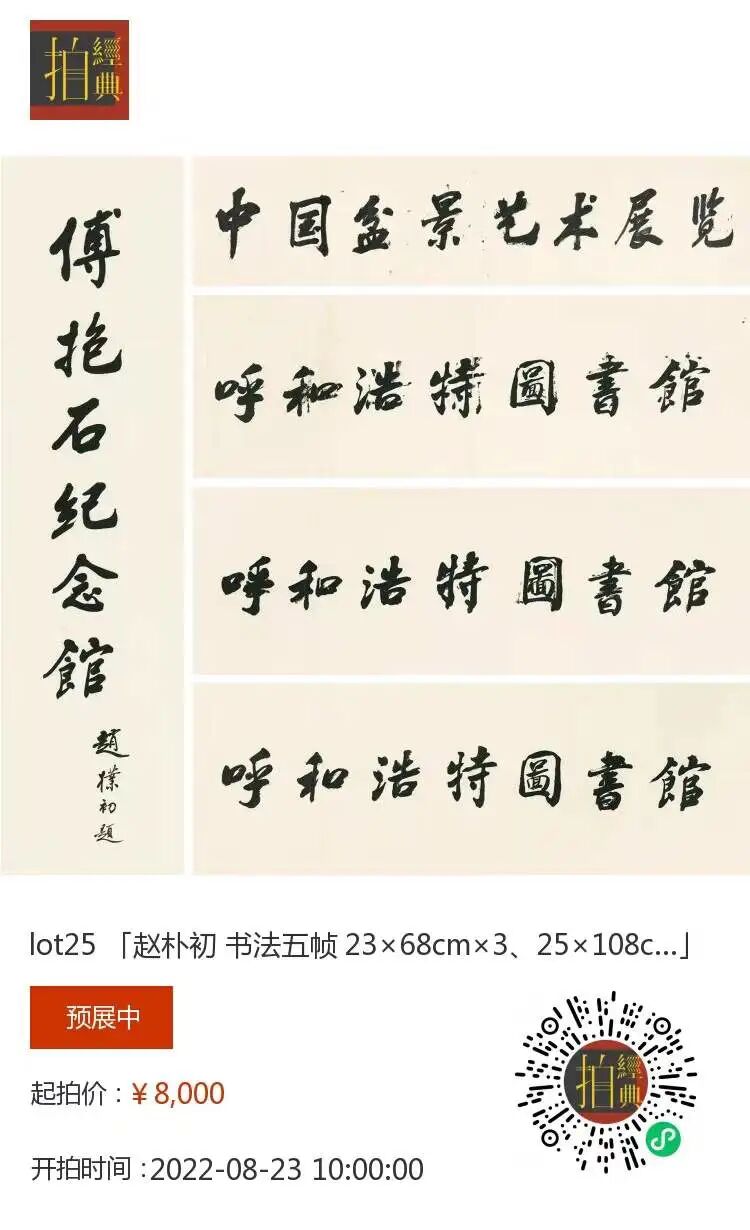 拍
經典
傅抱石纪念館
趙樸初題
中国盆景艺术展览
呼和浩特圖書館
呼和浩特圖書館
呼和浩特圖書館
lot25 「赵朴初 书法五帧 23×68cm×3、25×108c...」
预展中
起拍价：¥8,000
开拍时间：2022-08-23 10:00:00
拍
經典